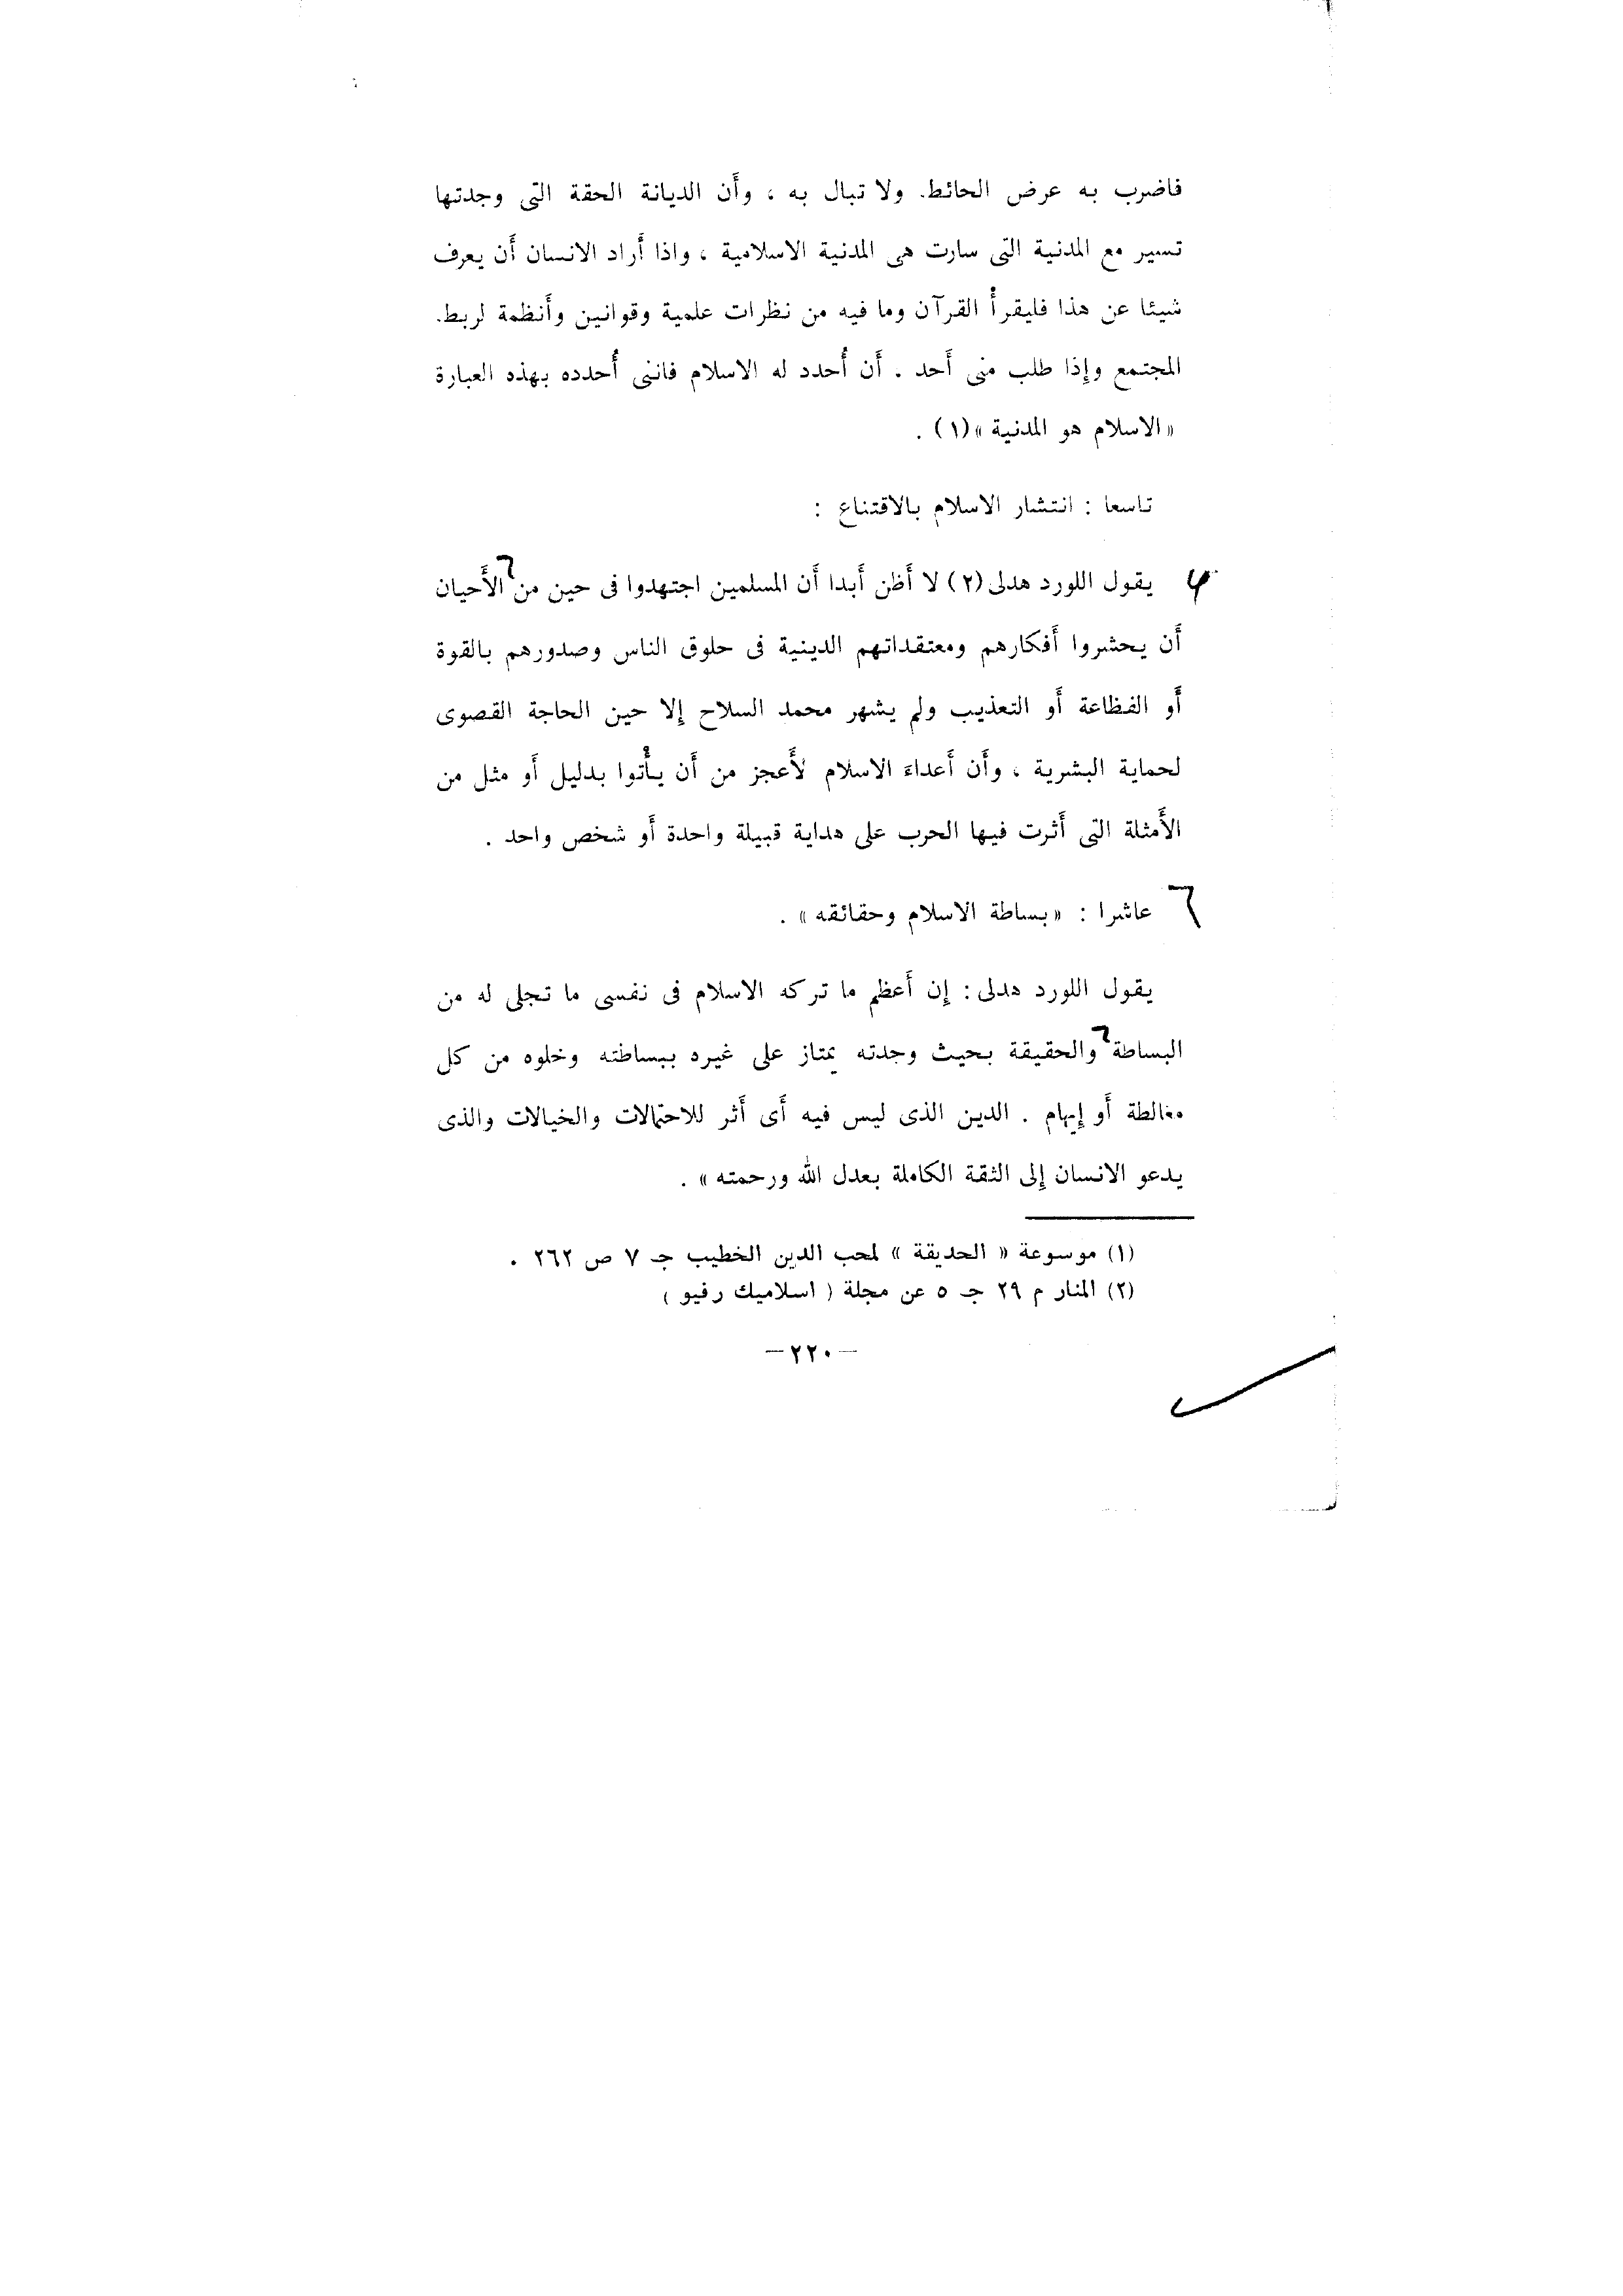 فاضرب به عرض الحائط. ولا تبال به ، وأَن الديانة الحقة التى وجدتها
تسير مع المدنية التى سارت هى المدنية الاسلامية ، واذا أَراد الانسان أَن يعرف
شيئا عن هذا فليقرأْ القرآن وما فيه من نظرات علمية وقوانين وأَنظمة لربط.
المجتمع وإِذا طلب منى أَحد . أَن أُحدد له الاسلام فاننى أُحدده بهذه العبارة
« الاسلام هو المدنية »(١) .
تاسعا : انتشار الاسلام بالاقتناع :
يقول اللورد هدلى(٢) لا أَظن أَبدا أَن المسلمين اجتهدوا فى حين من الأَحيان
أَن يحشروا أَفكارهم ومعتقداتهم الدينية فى حلوق الناس وصدورهم بالقوة
أَو الفظاعة أَو التعذيب ولم يشهر محمد السلاح إِلا حين الحاجة القصوى
لحماية البشرية ، وأَن أَعداءَ الاسلام لأَعجز من أَن يأْتوا بدليل أَو مثل من
الأَمثلة التى أَثرت فيها الحرب على هداية قبيلة واحدة أَو شخص واحد .
عاشرا : «بساطة الاسلام وحقائقه» .
يقول اللورد هدلى : إِن أَعظم ما تركه الاسلام فى نفسى ما تجلى له من
البساطة والحقيقة بحيث وجدته يمتاز على غيره ببساطته وخلوه من كل
مغالطة أَو إِيهام . الدين الذى ليس فيه أَى أَثر للاحتمالات والخيالات والذى
يدعو الانسان إِلى الثقة الكاملة بعدل الله ورحمته » .
(١) موسوعة « الحديقة » لمحب الدين الخطيب جـ ٧ ص ٢٦٢ .
(٢) المنار م ٢٩ جـ ٥ عن مجلة ( اسلاميك رفيو )
—٢٢٠—